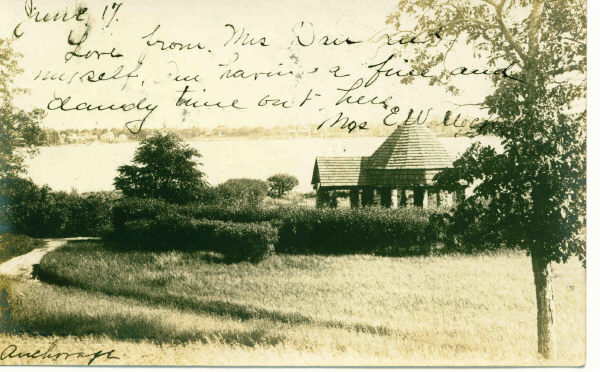 June 17.
Love from. Mrs Dan and
myself, Im having a fine and
dandy time out here
Mrs E W
Anchorage.